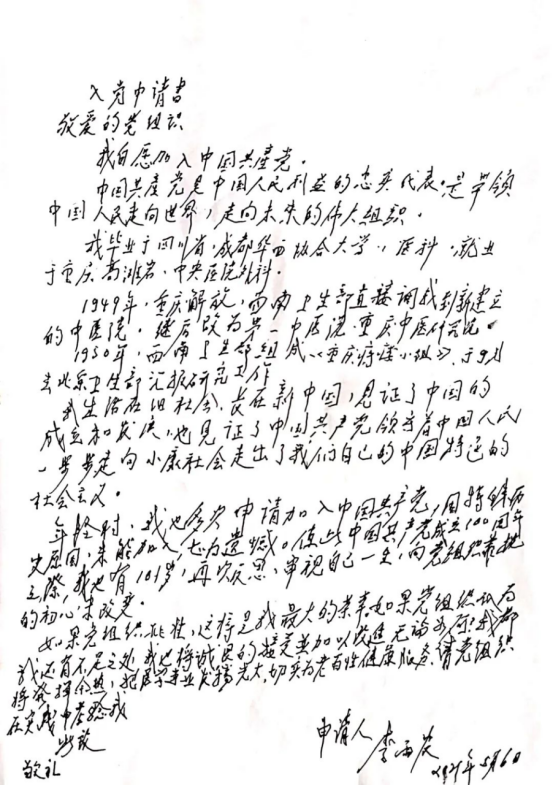 入党申请书
敬爱的党组织
我自愿加入中国共産党。
中国共産党是中国人民利益的忠实代表。是带领
中国人民走向世界,走向未来的伟大组织。
我毕业于四川省,成都华西协合大学,医科,就业
于重庆高滩岩,中央医院外科。
1949年,重庆解放,西南卫生部直接调我到新建立
的中医院,继后改为第一中医院,重庆中医研究所。
1950年,西南卫生部组成《重庆痔瘻小组》,于9月
去北京卫生部汇报研究工作
我生活在旧社会,长在新中国,见证了中国的
成立和发展,也见证了中国共产党领导着中国人民
一步步走向小康社会走出了我们自己的中国特色的
社会主义。
年轻时,我也多次申请加入中国共产党,因特殊历
史原因,未能加入,尤为遗憾。值此中国共产党成立100周年
之际,我也有101岁,再次反思,审视自己一生,向党组织靠拢
的初心未改变。
如果党组织批准,这将是我最大的荣幸,如果党组织认为
我还有不足之处,我也将诚恳的接受并加以改进,无论如何,我都
将发挥余热,把医学事业发扬光大,切实为老百姓健康服务,请党组织
在实践中考验我
此致
敬礼
申请人 李雨农
2021年5月6日